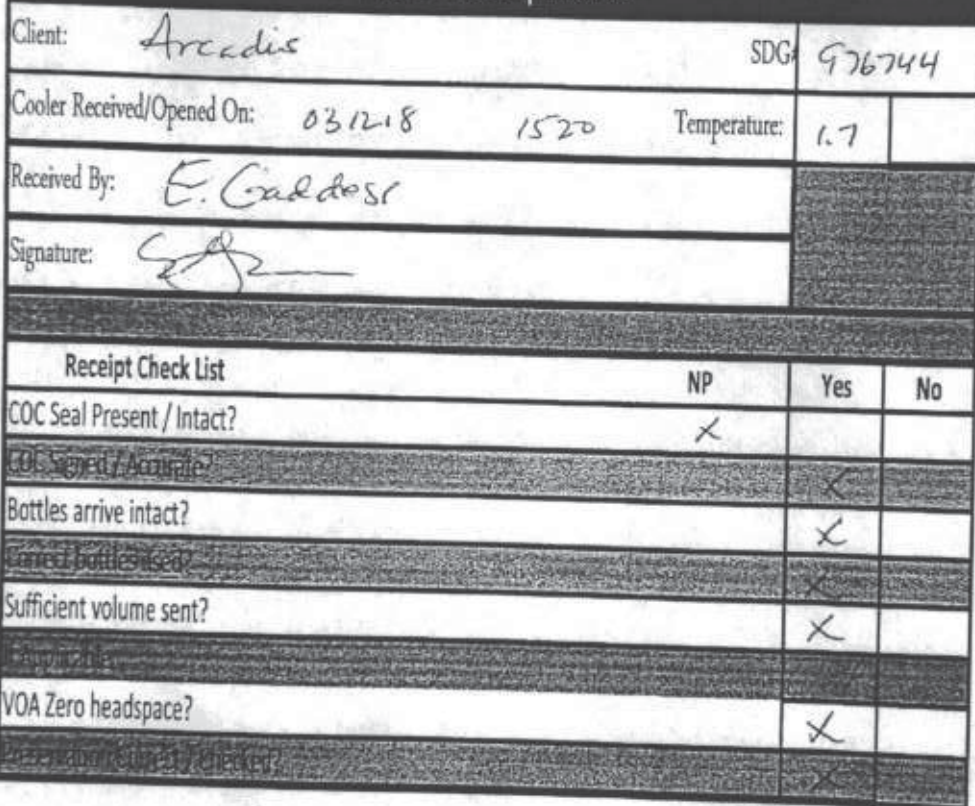 Client: Arcadis SDG# 976744
Cooler Received/Opened On: 031218 1520 Temperature: 1.7
Received By: E. Gaddese
Signature:
Receipt Check List NP Yes No
COC Seal Present / Intact? X
COC Signed / Accurate? X
Bottles arrive intact? X
Correct bottles used? X
Sufficient volume sent? X
If Applicable
VOA Zero headspace? X
Preservation Correct / Checked? X